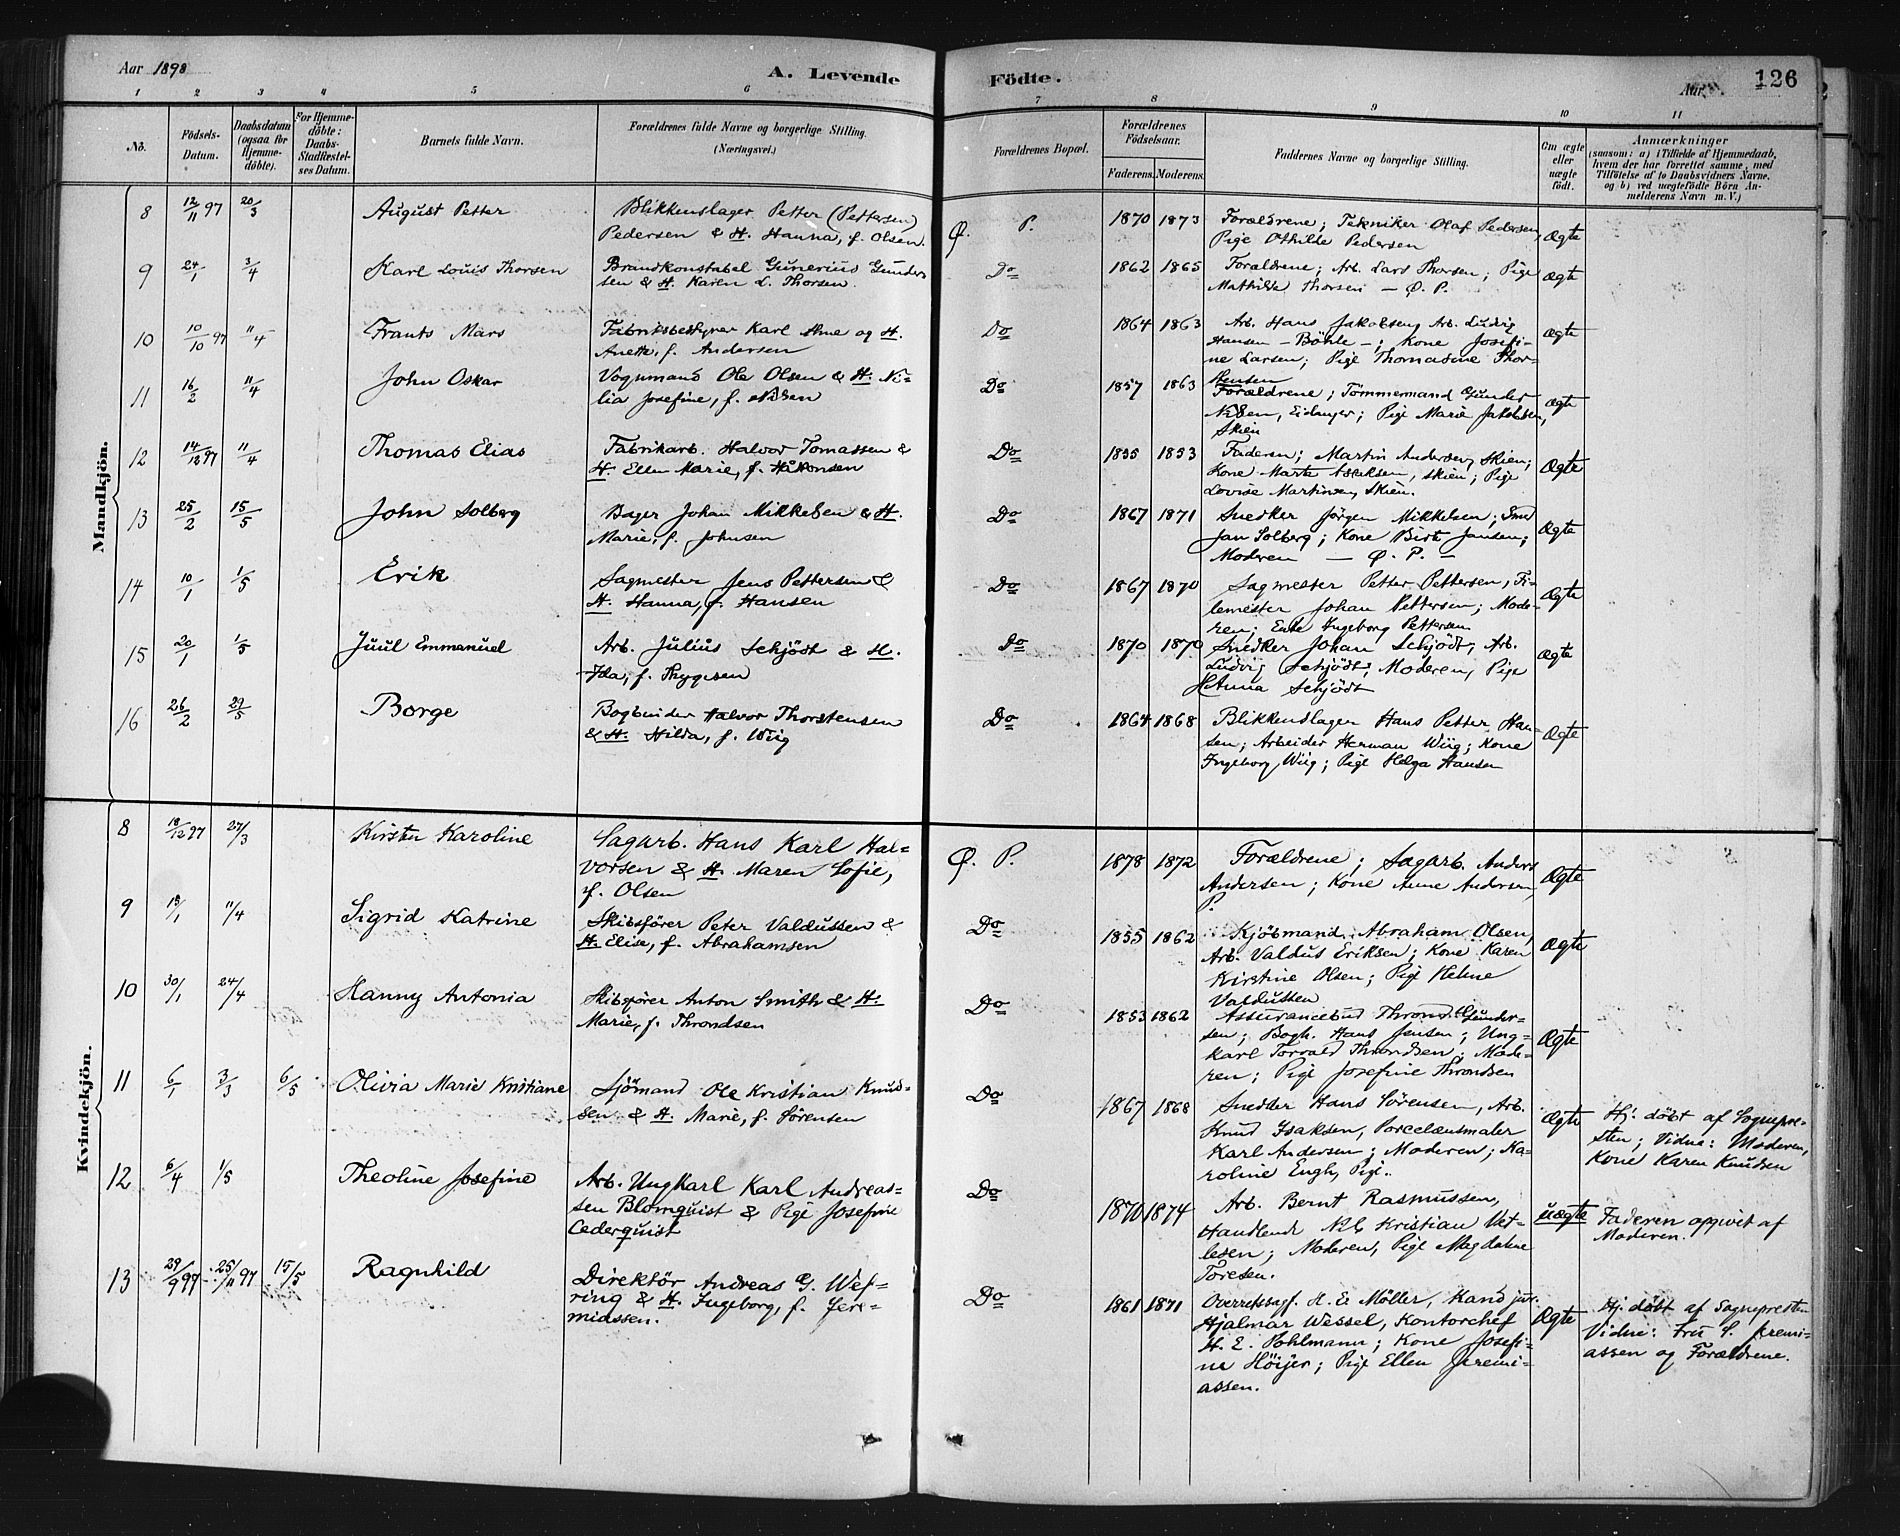 Aar 1898
A. Levende
Födte.
Aar
126
1 2 3 4 5 6 7 8 9 10 11
No.
Födsels-
Datum.
Daabsdatum
(ogsaa for
Hjemme-
döbte).
For Hjemme-
döbte:
Daabs-
Stadfæstel-
ses Datum.
Barnets fulde Navn.
Forældrenes fulde Navne og borgerlige Stilling.
(Næringsvei.)
Forældrenes Bopæl.
Forældrenes
Födselsaar.
Faderens. Moderens.
Faddernes Navne og borgerlige Stilling.
Om ægte
eller
uægte
födt.
Anmærkninger
(saasom: a) i Tilfælde af Hjemmedaab,
hvem der har forrettet samme, med
Tilföielse af to Daabsvidners Navne,
og b) ved uægtefödte Börn An-
melderens Navn m. V.)
Mandkjön.
8 12/11 97 20/3 August Petter
Blikkenslager Petter (Pettersen)
Pedersen & H. Hanna, f. Olsen.
Ø. P. 1870 1873
Forældrene; Tekniker Olaf Pedersen,
Pige Othilde Pedersen
Ægte
9 24/1 3/4 Karl Louis Thorsen
Brandkonstabel Gunerius Gunder-
sen & H. Karen L. Thorsen.
Do 1862 1865
Forældrene; Arb. Lars Thorsen; Pige
Mathilde Thorsen — Ø. P.
Ægte
10 10/10 97 11/4 Frants Mars
Fabriksbestyrer Karl Hne og H.
Anette, f. Andersen
Do 1864 1863
Arb. Hans Jakobsen, Arb. Ludvig
Hansen – Böhle –; Kone Josefi-
ne Larsen; Pige Thomasine Thor-
stensen
Ægte
11 16/2 11/4 John Oskar
Vognmand Ole Olsen & H. Ni-
lia Josefine, f. Nilsen
Do 1857 1863
Forældrene; Tömmermand Gunder
Nilsen, Eidanger; Pige Marie Jakobsen,
Skien
Ægte
12 14/12 97 11/4 Thomas Elias
Fabrikarb. Halvor Tomassen &
H. Ellen Marie, f. Håkonsen
Do 1855 1853
Faderen; Martin Andersen, Skien;
Kone Marte Isaksen, Skien; Pige
Lovise Martinsen, Skien.
Ægte
13 25/2 15/5 John Solberg
Bager Johan Mikkelsen & H.
Marie, f. Johnsen
Do 1867 1871
Snedker Jörgen Mikkelsen; Smed
Jan Solberg; Kone Birte Jansen;
Moderen — Ø. P. —
Ægte
14 10/1 1/5 Erik
Sagmester Jens Pettersen &
H. Hanna, f. Hansen
Do 1867 1870
Sagmester Petter Pettersen, Fi-
lemester Johan Pettersen; Mode-
ren; Enke Ingeborg Pettersen
Ægte
15 20/1 1/5 Juul Emmanuel
Arb. Julius Schjödt & H.
Ida, f. Thygesen
Do 1870 1870
Snedker Johan Schjödt, Arb.
Ludvig Schjödt; Moderen, Pige
Hanna Schjödt
Ægte
16 26/2 29/5 Borge
Bogbinder Halvor Thorstensen
& H. Hilda, f. Wiig
Do 1864 1868
Blikkenslager Hans Petter Han-
sen; Arbeider Herman Wiig; Kone
Ingeborg Wiig; Pige Helga Hansen
Ægte
Kvindekjön.
8 18/12 97 27/3 Kirsten Karoline
Sagarb. Hans Karl Hal-
vorsen & H. Maren Sofie,
f. Olsen
Ø. P. 1878 1872
Forældrene; Sagarb. Anders
Andersen; Kone Anne Andersen,
P.
Ægte
9 18/1 11/4 Sigrid Katrine
Skibsförer Peter Valdussen &
H. Elise, f. Abrahamsen
Do 1855 1862
Kjöbmand Abraham Olsen,
Arb. Valdus Eriksen; Kone Karen
Kirstine Olsen; Pige Helene
Valdussen
Ægte
10 30/1 24/4 Hanny Antonia
Skibsförer Anton Smith & H.
Marie, f. Throndsen
Do 1853 1862
Assurancebud Thrond Gunder-
sen; Bogh. Hans Jensen; Ung-
karl Torvald Throndsen; Mode-
ren; Pige Josefine Throndsen
Ægte
11 6/1 3/3 6/5 Olivia Marie Kristiane
Sjömand Ole Kristian Knud-
sen & H. Marie, f. Sörensen
Do 1867 1868
Snedker Hans Sörensen, Arb.
Knud Isaksen, Porcelænsmaler
Karl Andersen; Moderen; Ka-
roline Engh, Pige.
Ægte
Hj. döbt af Sognepre-
sten; Vidne: Moderen,
Kone Karen Knudsen
12 6/4 1/5 Theoline Josefine
Arb. Ungkarl Karl Andreas-
sen Blomquist & Pige Josefine
Cederquist
Do 1870 1874
Arb. Bernt Rasmussen,
Handlende Nils Kristian Vet-
lesen; Moderen, Pige Magdalene
Toresen.
uægte
Faderen opgivet af
Moderen.
13 29/9 97 25/11 97 15/5 Ragnhild
Direktör Andreas G. Wef-
ring & H. Ingeborg, f. Jere-
miassen.
Do 1861 1871
Overretssagf. H. E. Möller, Kand jur.
Hjalmar Wessel, Kontorchef
H. E. Pohlmann; Kone Josefi-
ne Höijer; Pige Ellen Jeremi-
assen.
Ægte
Hj. döbt af Sognepresten
Vidne: Fru S. Jeremi-
assen og Forældrene.